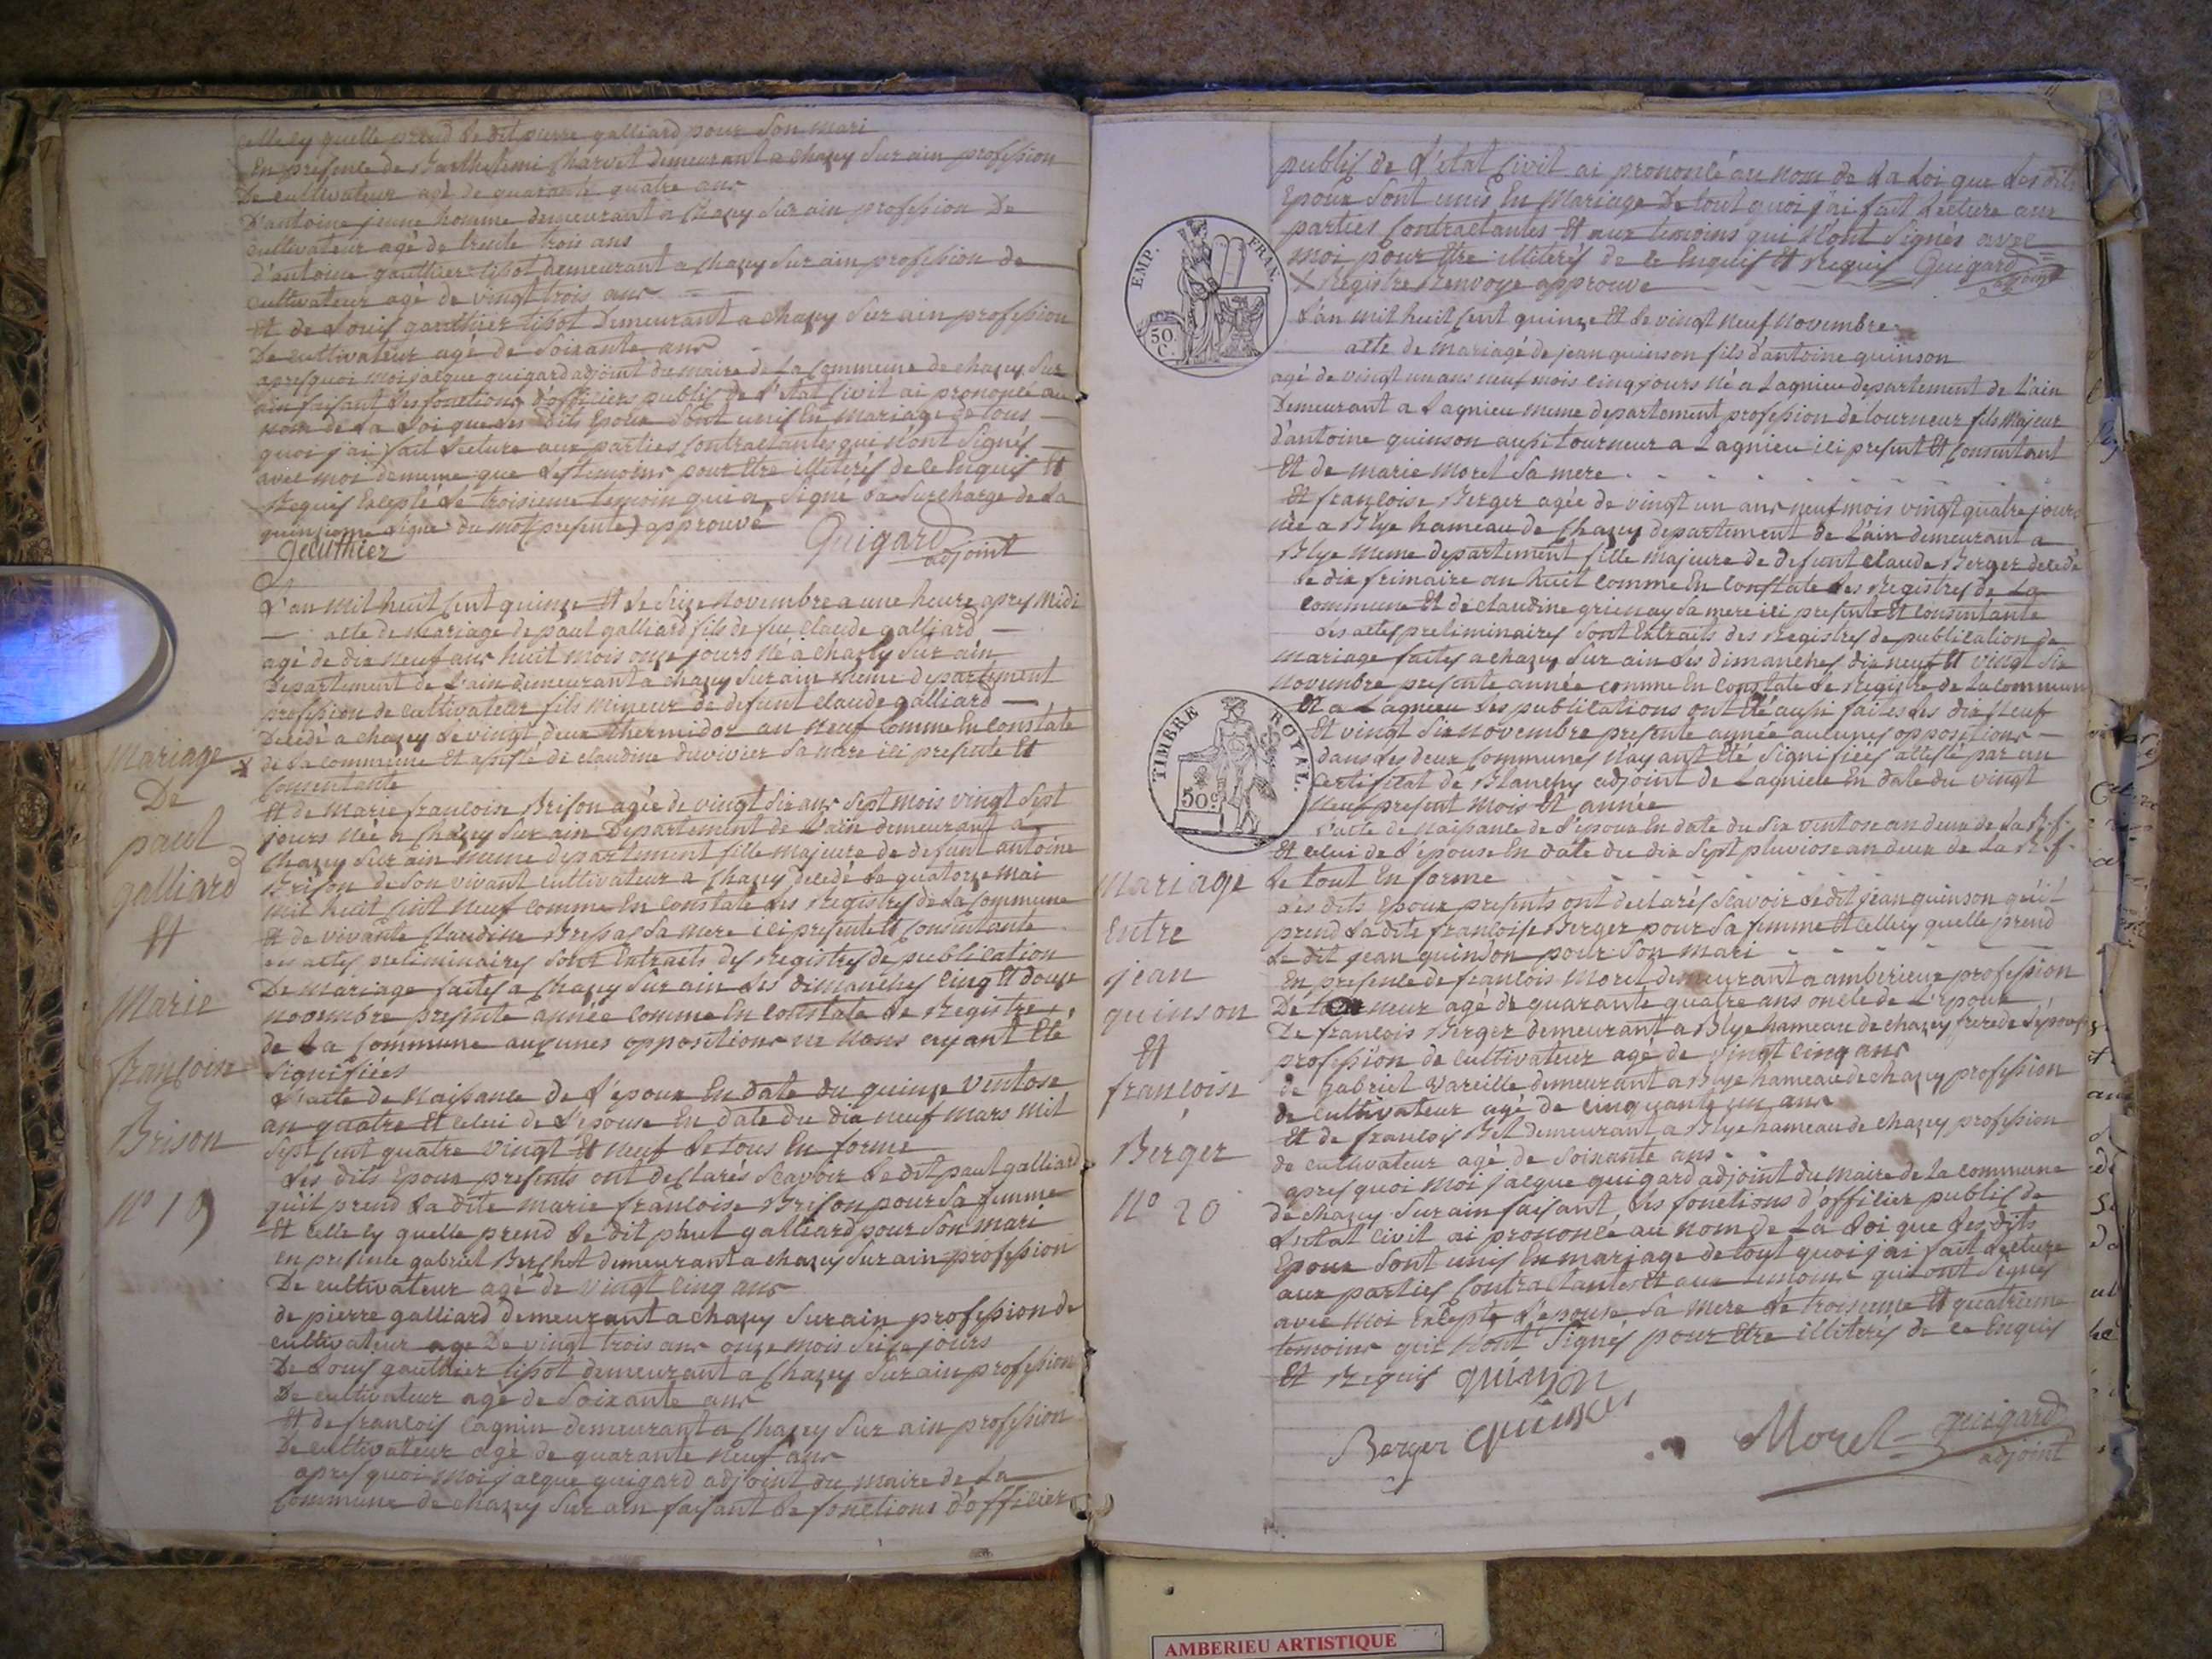 celle cy quelle prend le dit pierre galliard pour son mari
En presence de Barthelemi Charvet demeurant a chazey sur ain profession
De cultivateur agé de quarante quatre ans
D'antoine jeune homme demeurant a Chazey sur ain profession De
cultivateur agé de trente trois ans
d'antoine gauthier demeurant a chazey sur ain profession de
cultivateur agé de vingt trois ans
Et de Louis gauthier Demeurant a chazey sur ain profession
De cultivateur agé de soixante ans
apres quoi moi jacque guigard adjoint du maire de la Commune de chazey sur
ain faisant les fonctions d'officiers public de l'etat civil ai prononcé au
nom de la Loi que les dits Epoux sont unis En mariage de tous
quoi j'ai fait Lecture aux parties Contractantes qui n'ont signés
avec moi de meme que les temoins pour Etre illiterés de ce Enquis Et
Requis Excepté le troisieme temoin qui a signé la surcharge de la
ligne du mot (presente) approuvé
Gauthier Guigard
adjoint
L'an mil huit Cent quinze Et le seize novembre a une heure apres midi
acte de mariage de paul galliard fils de feu Claude galliard
agé de dix neuf ans huit mois onze jours né a chazey sur ain
Departement de l'ain demeurant a chazey sur ain meme departement
profession de cultivateur fils mineur de defunt claude galliard
Décédé a chazey le vingt deux thermidor an neuf Comme En constate
de la commune Et assisté de claudine duvivier sa mere ici presente Et
Consentante
Et de Marie francoise Brison agée de vingt six ans sept mois vingt sept
jours née a Chazey sur ain Departement de l'ain demeurant a
Chazey sur ain meme departement fille majeure de defunt antoine
Brison de son vivant cultivateur a Chazey decedé le quatorze mai
mil huit cent neuf comme En constate les registres de la commune
Et de vivante Claudine sa mere ici presente Et Consentante
les actes preliminaires sont Extraits des registres de publication
De mariage faites a Chazey sur ain les dimanches cinq Et douze
novembre presente année comme En constate le Registre
de la Commune aucunes oppositions ne nous ayant Eté
signifiées
L'acte de naissance de l'epoux En date du quinze Ventose
an quatre Et celui de l'epouse En date du dix neuf mars mil
sept cent quatre vingt Et neuf le tous En forme
les dits Epoux presents ont declarés scavoir le dit paul galliard
qu'il prend la dite marie francoise Brison pour sa femme
Et celle cy quelle prend le dit paul galliard pour son mari
en presence gabriel Berchet demeurant a chazey sur ain profession
De cultivateur agé de vingt cinq ans
de pierre galliard demeurant a chazey sur ain profession de
cultivateur age De vingt trois ans onze mois seize jours
De Louis gauthier demeurant a Chazey sur ain profession
De cultivateur agé de soixante ans
Et de francois Cagnin demeurant a Chazey sur ain profession
De cultivateur agé de quarante neuf ans
apres quoi moi jacque guigard adjoint du maire de la
Commune de chazey sur ain faisant le fonctions d'officier
Mariage
De
paul
galliard
Et
Marie
francoise
Brison
N° 19
public de l'etat Civil ai prononcé au nom de la Loi que les dits
Epoux sont unis En Mariage De tout quoi j'ai fait Lecture aux
parties Contractantes Et aux temoins qui n'ont signés avec
moi pour Etre illiterés de ce Enquis Et requis Guigard
adjoint
X Registre Renvoye approuvé
L'an mil huit cent quinze Et le vingt neuf Novembre
acte de mariage de jean quinson fils d'antoine quinson
agé de vingt un ans neuf mois cinq jours né a Lagnieu departement de l'ain
Demeurant a Lagnieu meme departement profession de tourneur fils Majeur
d'antoine quinson aussi tourneur a Lagnieu ici present Et Consentant
Et de marie Morel sa mere
Et francoise Berger agée de vingt un ans neuf mois vingt quatre jours
née a Blye hameau de Chazey departement de l'ain demeurant a
Blye meme departement fille majeure de defunt claude Berger decedé
le dix frimaire an huit comme En constate les Registres de la
commune Et de claudine sa mere ici presente Et Consentante
les actes preliminaires sont Extraits des Registres de publication de
mariage faites a chazey sur ain les dimanches dix neuf Et vingt six
novembre presente année comme En constate le Registre de la commune
Et a Lagnieu les publications ont Eté aussi faites les dix neuf
Et vingt six novembre presente année aucunes oppositions
dans les deux communes n'ayant Eté signifiées attesté par un
Certificat de Blanchy adjoint de Lagnieu En date du vingt
neuf present mois Et année
L'acte de naissance de l'epoux En date du six ventose an deux de la R.f.
Et celui de l'épouse En date du dix sept pluviose an deux de la R.f.
le tout En forme
les dits Epoux presents ont declarés scavoir le dit jean quinson qu'il
prend la dite francoise Berger pour sa femme Et celle cy quelle prend
le dit jean quinson pour son mari
En presence de francois Morel demeurant a amberieux profession
De tourneur agé de quarante quatre ans oncle de L'epoux
De francois Berger demeurant a Blye hameau de chazey frere de l'épouse
profession de cultivateur agé de vingt cinq ans
de gabriel Vareille demeurant a Blye hameau de chazey profession
de cultivateur agé de cinquante un ans
Et de francois Bel demeurant a Blye hameau de chazey profession
de cultivateur agé de soixante ans
apres quoi moi jacque guigard adjoint du maire de la commune
de chazey sur ain faisant les fonctions d'officier public de
L'etat civil ai prononcé au nom de la Loi que les dits
Epoux sont unis En mariage de tout quoi j'ai fait Lecture
aux parties Contractantes Et aux temoins qui ont signés
avec moi Excepté l'epouse sa mere le troisieme Et quatrieme
temoins qui n'ont signés pour Etre illiterés de ce Enquis
Et Requis quinson
Berger quinson Morel guigard
adjoint
Mariage
Entre
jean
quinson
Et
francoise
Berger
N° 20
EMP. FRAN.
50
C.
TIMBRE ROYAL.
50c
AMBERIEU ARTISTIQUE